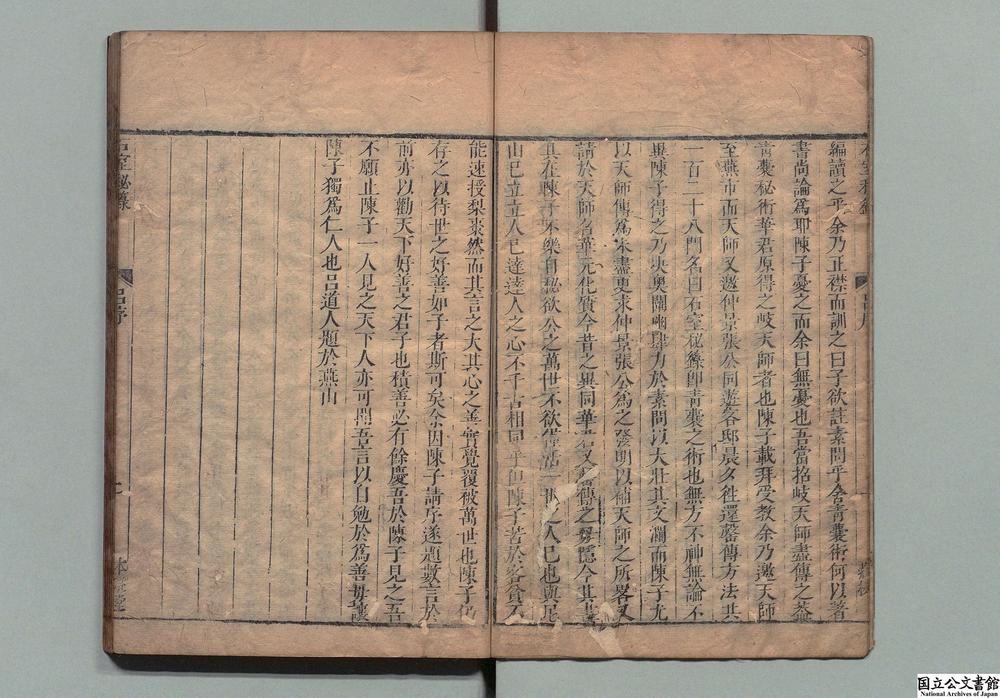 編讀之乎余乃正襟而訓之曰子欲註素問乎舍青囊術何以著
書尚論爲耶陳子憂之而余曰無憂也吾當招岐天師盡傳之葢
青囊秘術華君原得之岐天師者也陳子載拜受教余乃邀天師
至燕市而天師又邀仲景張公同遊客邸晨夕徃還罄傳方法共
一百二十八門名曰石室秘籙卽青囊之術也無方不神無論不
異陳子得之乃抉奧闡幽肆力於素問以大壯其文瀾而陳子尤
以天師傳爲未盡更求仲景張公爲之發明以補天師之所畧又
請於天師名華元化質今昔之異同華君又傳之無隱今其書
具在陳子不樂自秘欲公之萬世不欲一世之人已也與
山已立立人已達達人之心不千古相同乎但陳子苦於客貧不
能速授梨棗然而其言之大其心之善實覺覆被萬世也陳子仍
存之以待世之好善如子者斯可矣余因陳子請序遂題數言於
前亦以勸天下好善之君子也積善必有餘慶吾於陳子見之吾
不願止陳子一人見之天下人亦可聞吾言以自勉於爲善毋讓
陳子獨爲仁人也呂道人題於燕山
石室秘籙
呂序
二
本
国立公文書館
National Archives of Japan